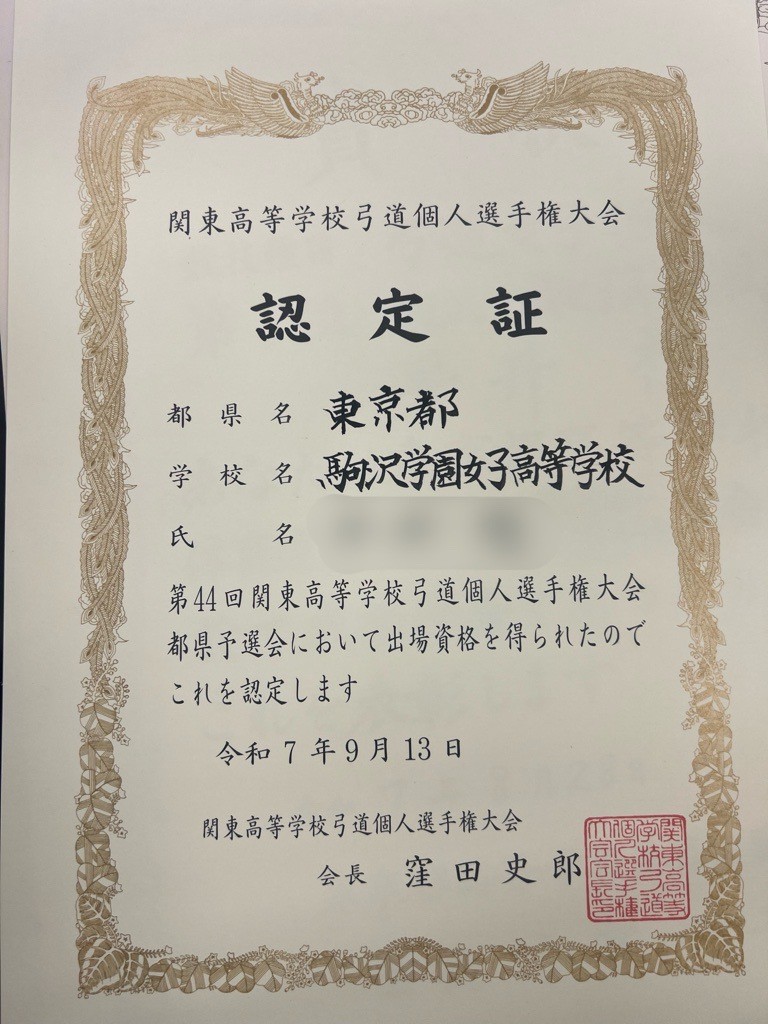 関東高等学校弓道個人選手権大会
認定証
都県名 東京都
学校名 駒沢学園女子高等学校
氏名
第44回関東高等学校弓道個人選手権大会
都県予選会において出場資格を得られたので
これを認定します
令和7年9月13日
関東高等学校弓道個人選手権大会
会長 窪田史郎
関東高等
学校弓道
個人選手権
大会会長印